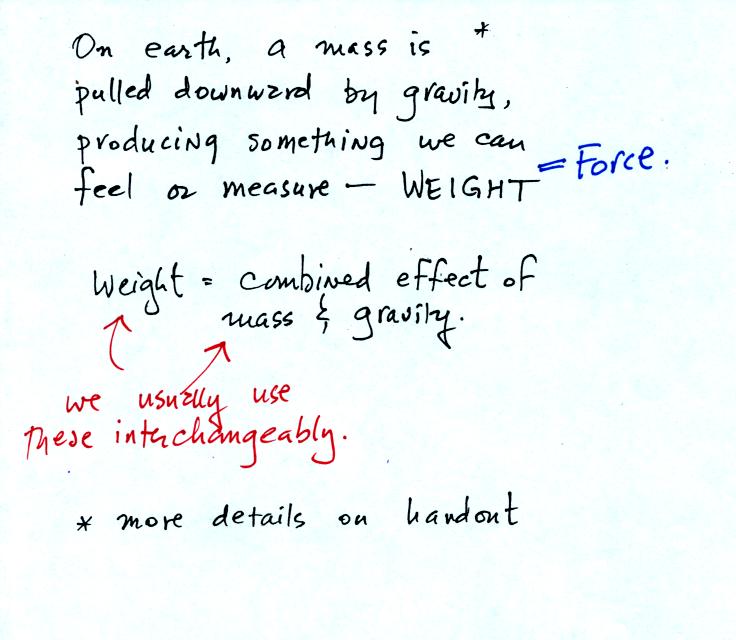 On earth, a mass is *
pulled downward by gravity,
producing something we can
feel or measure — WEIGHT = Force.
Weight = combined effect of
mass & gravity.
we usually use
these interchangeably.
* more details on handout